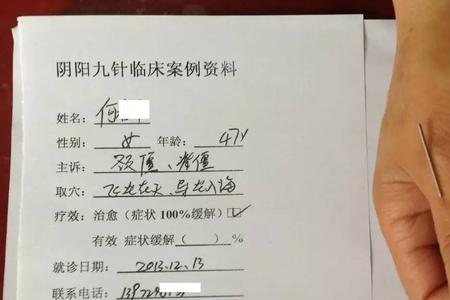 阴阳九针临床案例资料
姓名：何
性别：女 年龄：47岁
主诉：颈僵、背僵
取穴：飞龙在天、导龙入海
疗效：治愈（症状100%缓解）☑
有效 症状缓解（ ）%
就诊日期：2013.12.13
联系电话：